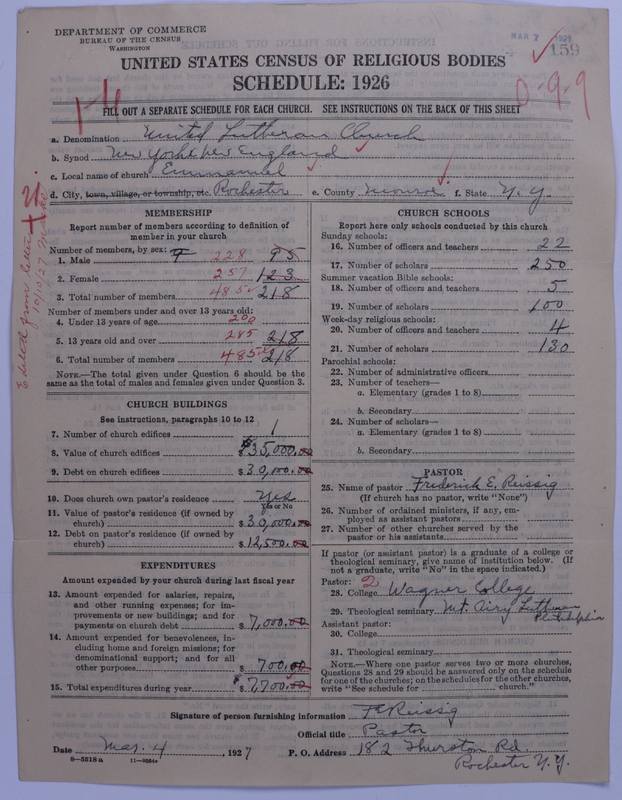 DEPARTMENT OF COMMERCE
BUREAU OF THE CENSUS
WASHINGTON
MAR 7 1927
159
UNITED STATES CENSUS OF RELIGIOUS BODIES
SCHEDULE: 1926
0-9-9
1-4
FILL OUT A SEPARATE SCHEDULE FOR EACH CHURCH. SEE INSTRUCTIONS ON THE BACK OF THIS SHEET
a. Denomination United Lutheran Church
b. Synod New York & New England
c. Local name of church Emmanuel
d. City, town, village, or township, etc. Rochester e. County Monroe f. State N.Y.
Edited from letter 10/10/27
MEMBERSHIP
Report number of members according to definition of
member in your church
Number of members, by sex:
1. Male 228 95
2. Female 257 123
3. Total number of members 485 218
Number of members under and over 13 years old:
4. Under 13 years of age 200
5. 13 years old and over 285 218
6. Total number of members 485 218
NOTE.—The total given under Question 6 should be the
same as the total of males and females given under Question 3.
CHURCH BUILDINGS
See instructions, paragraphs 10 to 12
7. Number of church edifices 1
8. Value of church edifices $35,000.00
9. Debt on church edifices $30,000.00
10. Does church own pastor's residence Yes
Yes or No
11. Value of pastor's residence (if owned by
church) $30,000.00
12. Debt on pastor's residence (if owned by
church) $12,500.00
EXPENDITURES
Amount expended by your church during last fiscal year
13. Amount expended for salaries, repairs,
and other running expenses; for im-
provements or new buildings; and for
payments on church debt $7,000.00
14. Amount expended for benevolences, in-
cluding home and foreign missions; for
denominational support; and for all
other purposes $700.00
15. Total expenditures during year $7,700.00
CHURCH SCHOOLS
Report here only schools conducted by this church
Sunday schools:
16. Number of officers and teachers 22
17. Number of scholars 250
Summer vacation Bible schools:
18. Number of officers and teachers 5
19. Number of scholars 100
Week-day religious schools:
20. Number of officers and teachers 4
21. Number of scholars 130
Parochial schools:
22. Number of administrative officers
23. Number of teachers—
a. Elementary (grades 1 to 8)
b. Secondary
24. Number of scholars—
a. Elementary (grades 1 to 8)
b. Secondary
PASTOR
25. Name of pastor Frederick E. Reissig
(If church has no pastor, write "None")
26. Number of ordained ministers, if any, em-
ployed as assistant pastors
27. Number of other churches served by the
pastor or his assistants
If pastor (or assistant pastor) is a graduate of a college or
theological seminary, give name of institution below. (If
not a graduate, write "No" in the space indicated.)
Pastor: 2
28. College Wagner College
29. Theological seminary Mt. Airy Lutheran
Philadelphia
Assistant pastor:
30. College
31. Theological seminary
NOTE.—Where one pastor serves two or more churches,
Questions 28 and 29 should be answered only on the schedule
for one of the churches; on the schedules for the other churches,
write "See schedule for church."
Signature of person furnishing information F E Reissig
Official title Pastor
Date Mar. 4, 1927 P. O. Address 182 Thurston Rd.
8—5518a 11—9064
Rochester N.Y.